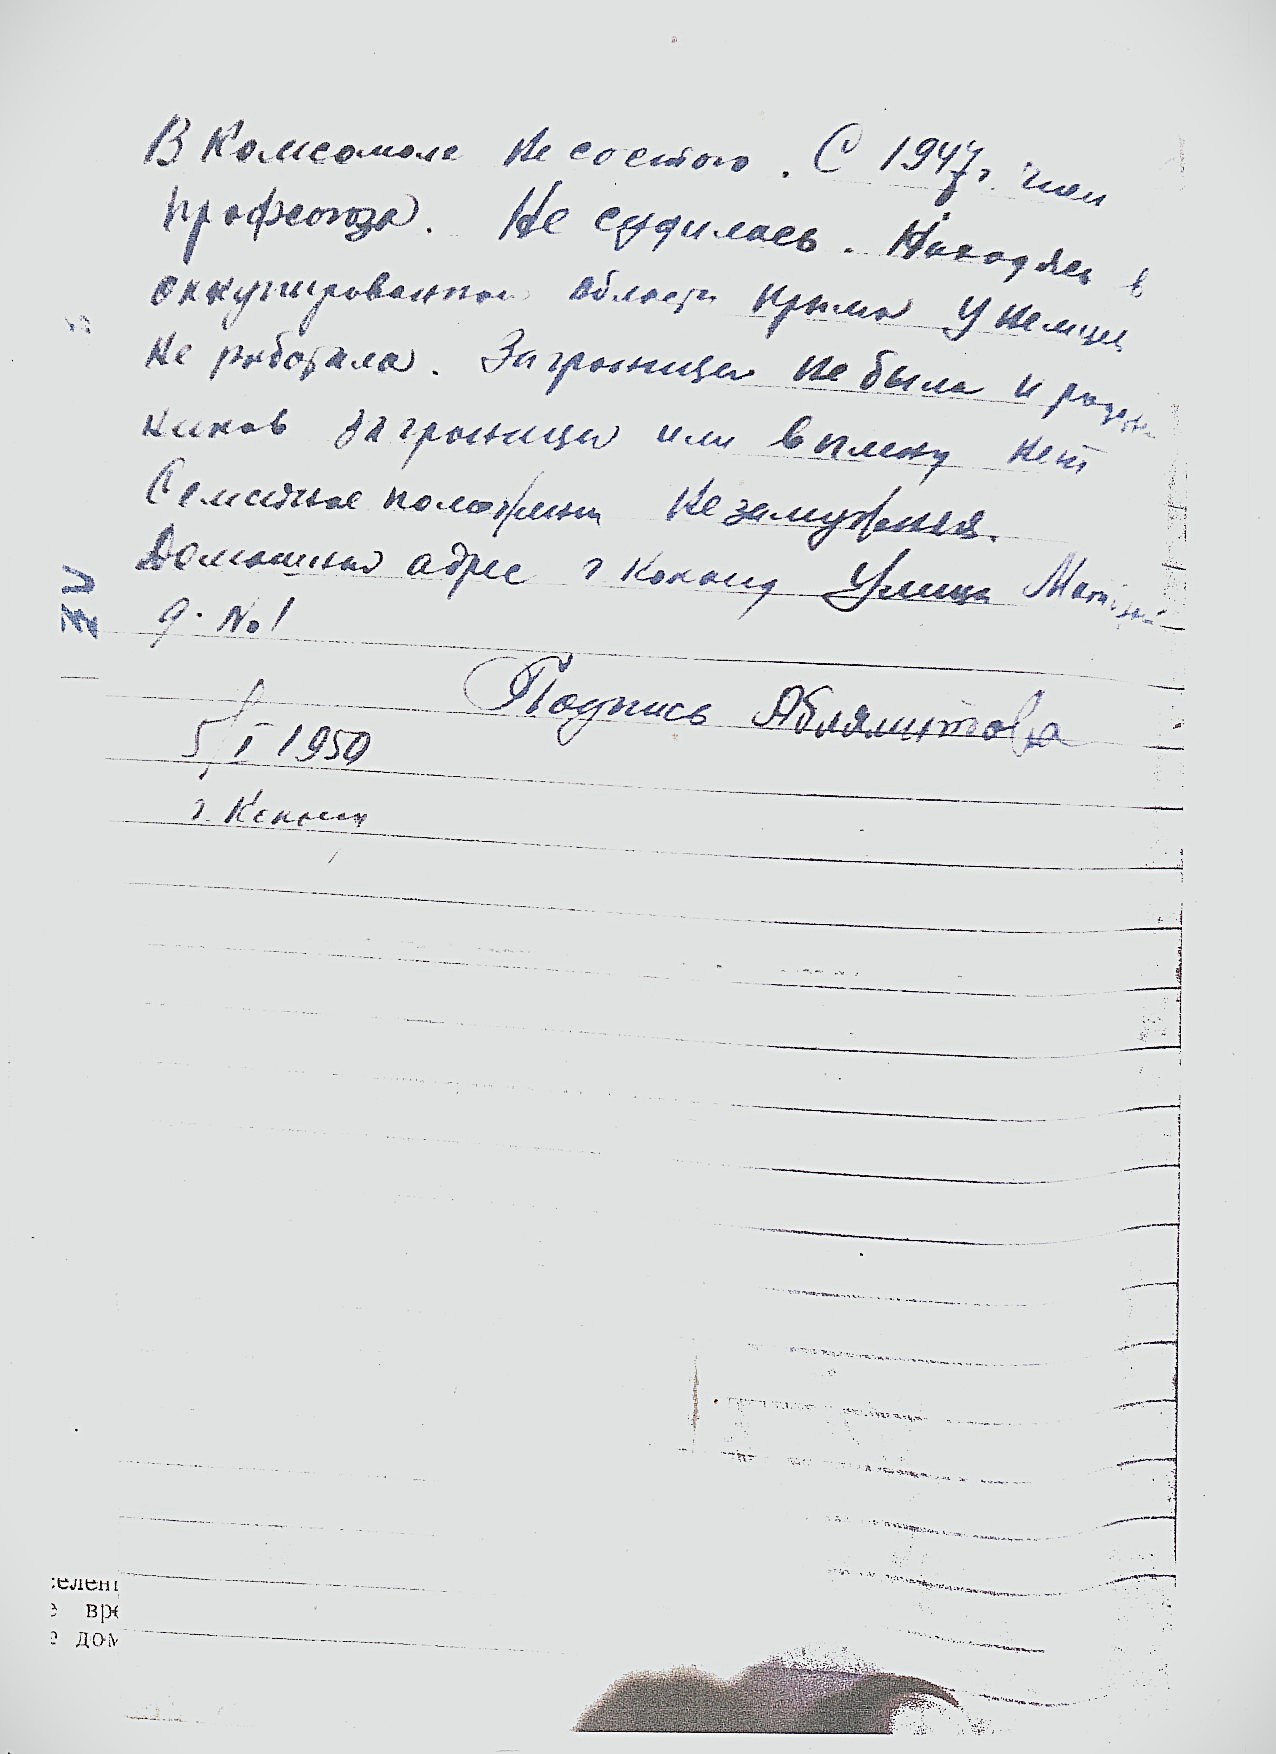 В Комсомоле не состою. С 1947 г. член
профсоюза. Не судилась. Находясь в
оккупированной области Крыма у немцев
не работала. Заграницей не была и родствен
ников заграницей или в плену нет
Семейное положение незамужняя.
Домашний адрес г Коканд Улица
д. №1
Подпись Аблямитова
5/I 1950
г. Коканд
селен
е вре
е дом